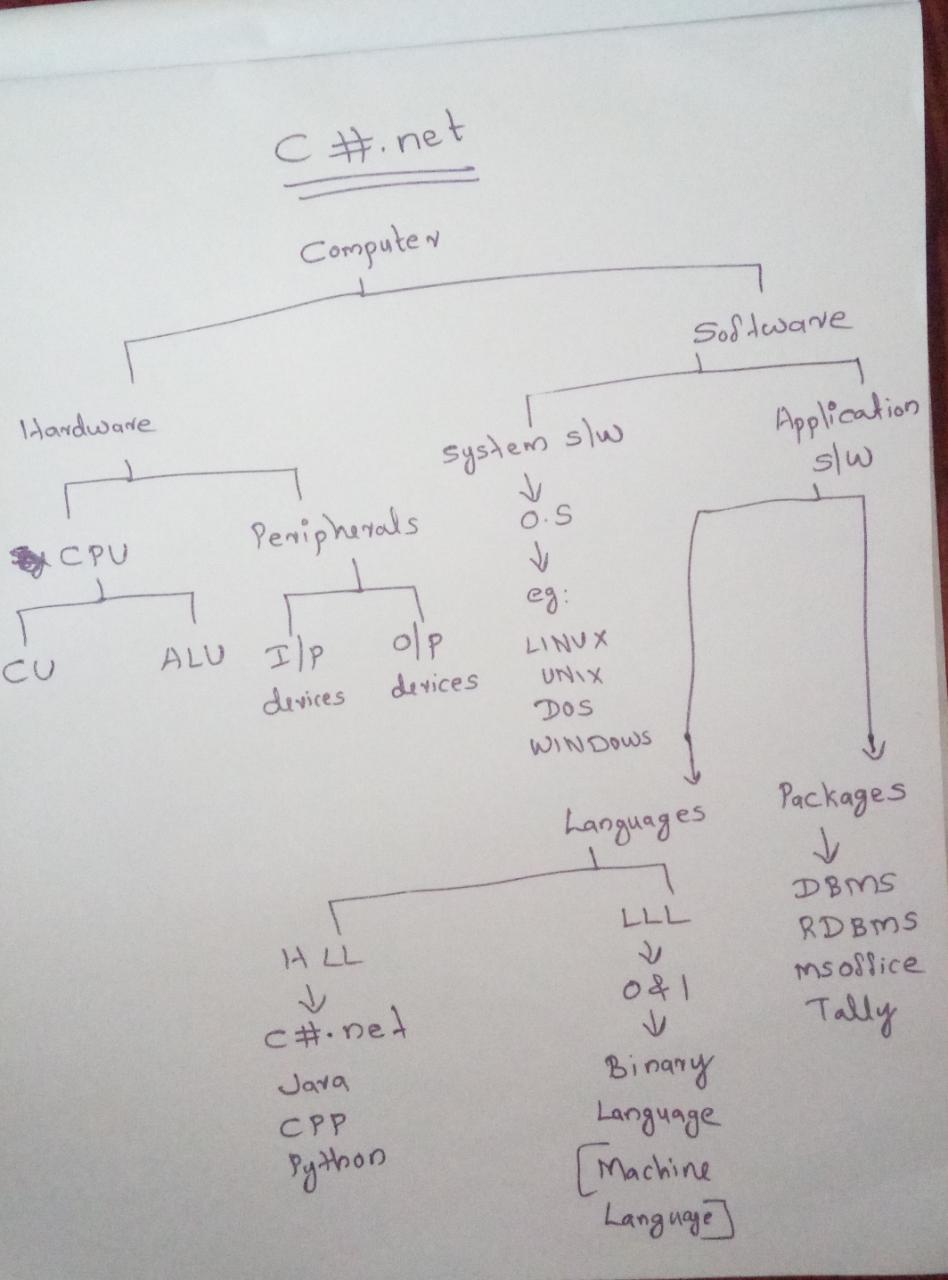 C #.net
Computer
Software
Hardware
System s/w
Application
s/w
CPU
Peripherals
O.S
eg:
CU
ALU
I/P
devices
O/P
devices
LINUX
UNIX
DOS
WINDOWS
Languages
Packages
HLL
LLL
DBMS
RDBMS
msoffice
Tally
0 & 1
C#.net
Java
CPP
Python
Binary
Language
[Machine
Language]